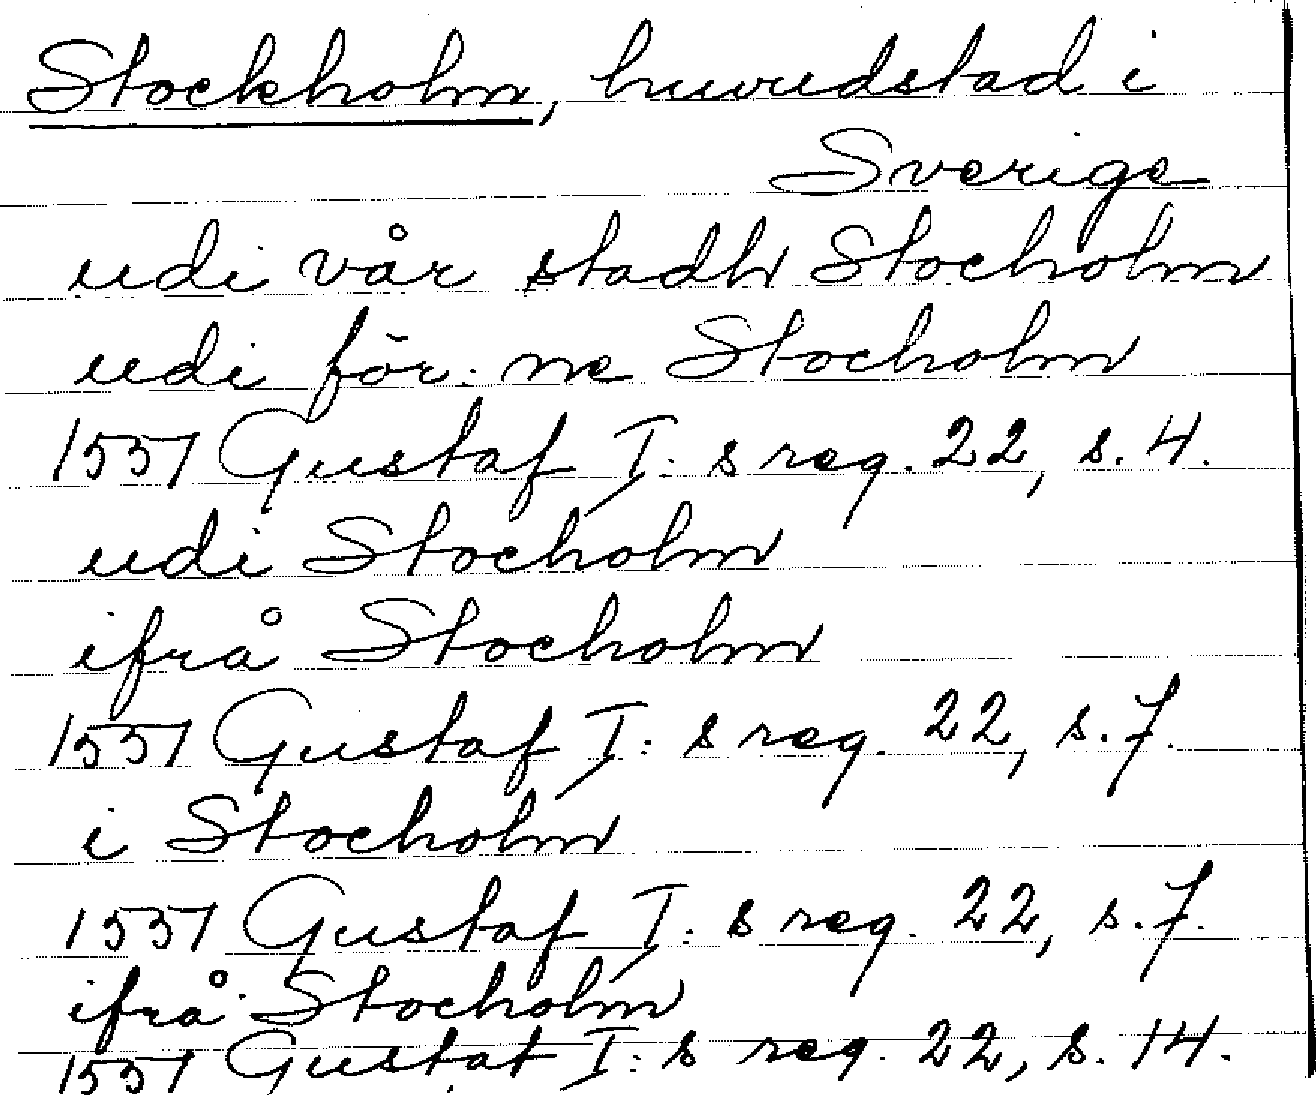 Stockholm, huvudstad i
Sverige
udi vår stadh Stocholm
udi för: ne Stocholm
1551 Gustaf I: s reg. 22, s. 4.
udi Stocholm
ifrå Stocholm
1551 Gustaf I: s reg. 22, s. 7.
i Stocholm
1551 Gustaf I: s reg. 22, s. 7.
ifrå Stocholm
1551 Gustaf I: s reg. 22, s. 14.